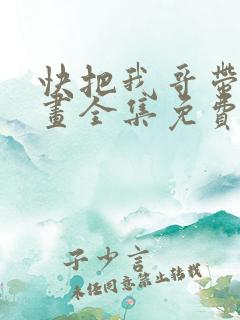 快把我哥帶
畫全集免費
子少言
未经同意禁止转载